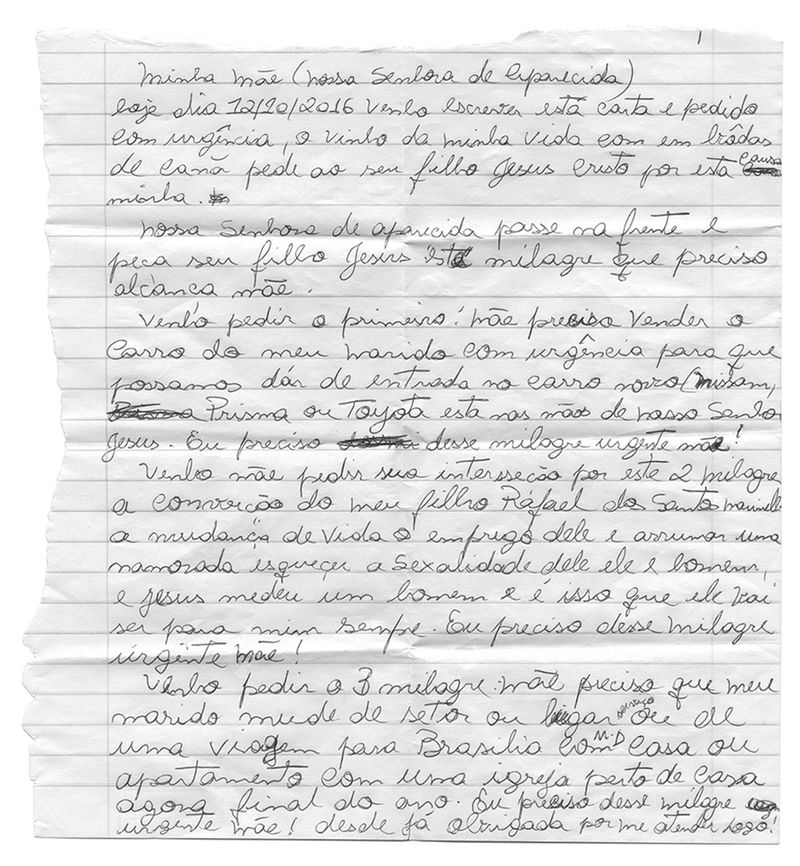 1
Minha mãe (nossa Senhora de Aparecida)
hoje dia 12/10/2016 venho escrever está carta e pedido
com urgência, o vinho da minha vida com em
de canã pede ao seu filho Jesus Cristo por esta causa
minha.
nossa Senhora de aparecida passe na frente e
peça seu filho Jesus este milagre que preciso
alcança mãe.
Venho pedir o primeiro! mãe preciso vender o
carro do meu marido com urgência para que
possamos dár de entrada no carro novo (nissam,
Prisma ou Toyota esta nas mãos de nosso Senho
Jesus. Eu preciso desse milagre urgente mãe!
Venho mãe pedir sua interseção por este 2 milagre
a do meu filho Rafael dos Santos
a mudança de vida o emprego dele e arrumar uma
namorada esquecer a Sexalidade dele ele e homem,
e Jesus medeu um homem e é isso que ele vai
ser para mim sempre. Eu preciso desse milagre
urgente mãe!
Venho pedir o 3 milagre. mãe preciso que meu
marido mude de setor ou lugar serviço ou de
uma viagem para Brasilia com M.D casa ou
apartamento com uma igreja perto de casa
agora final do ano. Eu preciso desse milagre
urgente mãe! desde já obrigada por me atender logo!